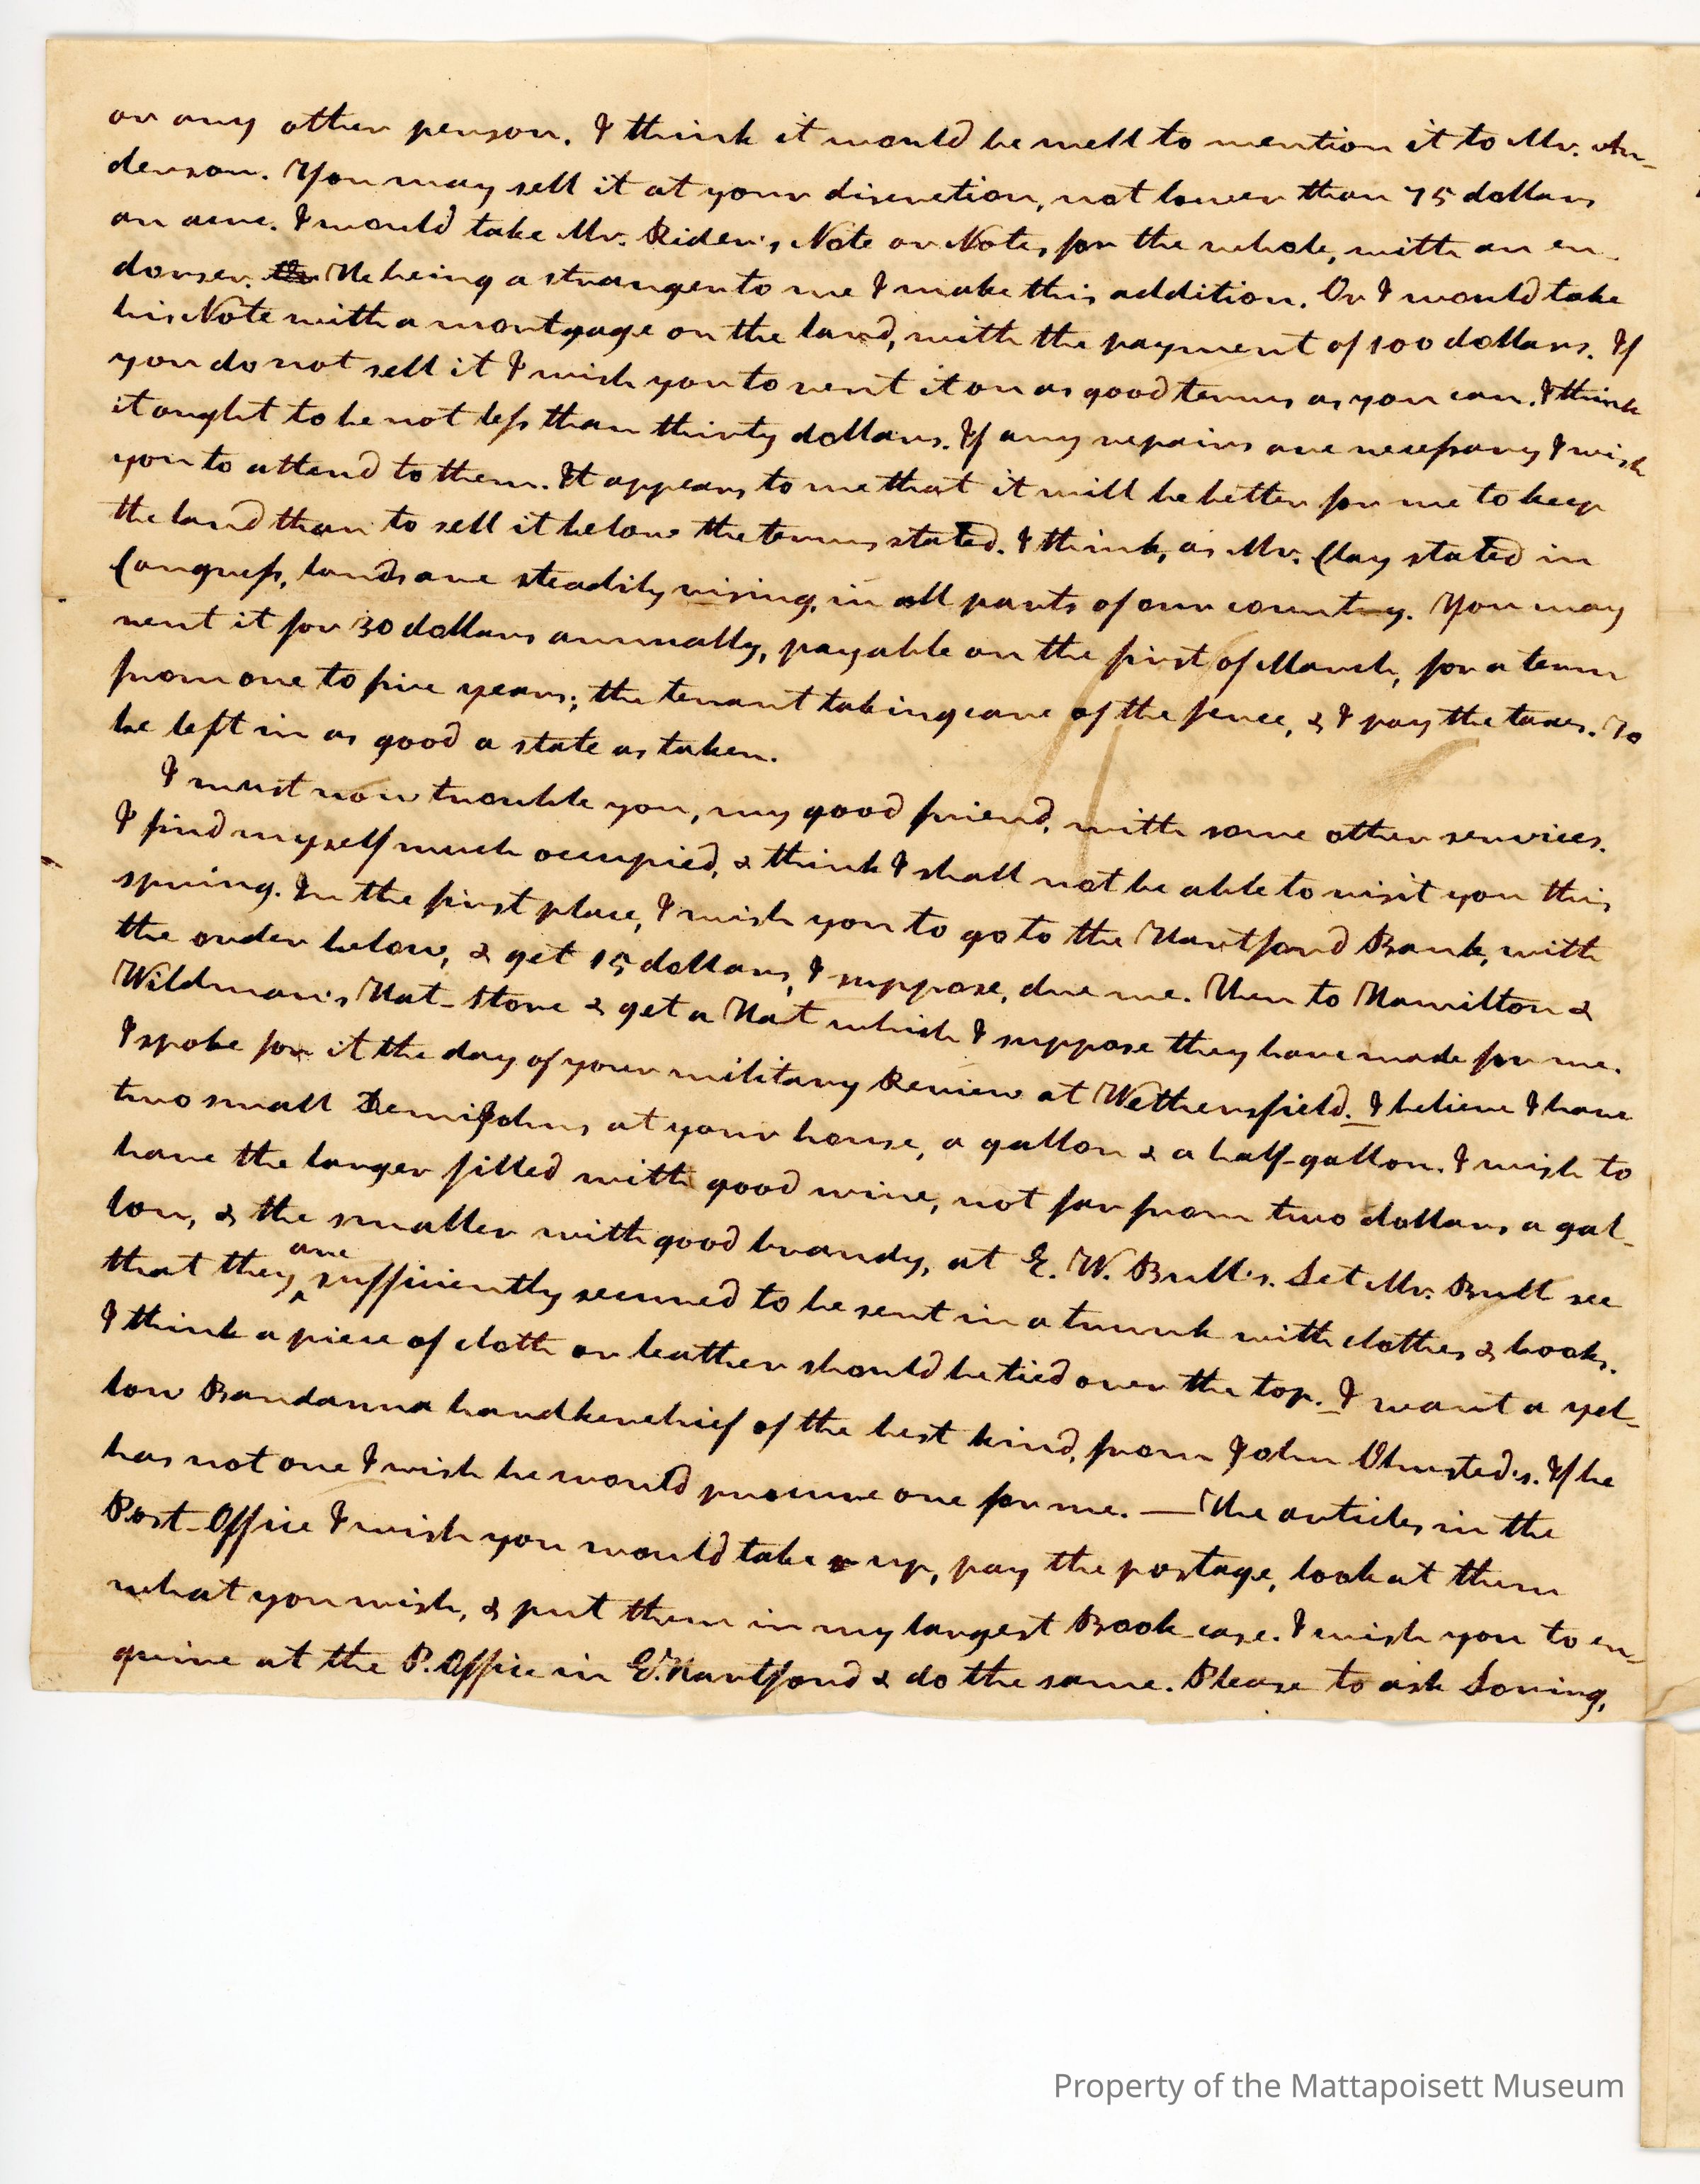 or any other person. I think it would be well to mention it to Mr. An-
derson. You may sell it at your discretion, not lower than 75 dollars
an acre. I would take Mr. Rider's Note or Notes for the whole, with an en-
dorser. He being a stranger to me I make this addition. Or I would take
his Note with a mortgage on the land, with the payment of 100 dollars. If
you do not sell it I wish you to rent it on as good terms as you can. I think
it ought to be not less than thirty dollars. If any repairs are necessary I wish
you to attend to them. It appears to me that it will be better for me to keep
the land than to sell it below the terms stated. I think, as Mr. Clay stated in
Congress, lands are steadily rising, in all parts of our country. You may
rent it for 30 dollars annually, payable on the first of March, for a term
from one to five years; the tenant taking care of the fence, & I pay the taxes. To
be left in as good a state as taken.
I must now trouble you, my good friend, with some other services.
I find myself much occupied, & think I shall not be able to visit you this
spring. In the first place, I wish you to go to the Hartford Bank, with
the order below, & get 15 dollars, I suppose, due me. Then to Hamilton &
Wildman's Hat-Store & get a Hat which I suppose they have made for me.
I spoke for it the day of your military Review at Wethersfield. I believe I have
two small DemiJohns at your house, a gallon & a half-gallon. I wish to
have the larger filled with good wine, not far from two dollars a gal-
lon, & the smaller with good brandy, at E. W. Bull's. Let Mr. Bull see
that they are sufficiently secured to be sent in a trunk with clothes & books.
I think a piece of cloth or leather should be tied over the top. I want a yel-
low Bandanna handkerchief of the best kind, from John Olmsted's. If he
has not one I wish he would procure one for me. — The articles in the
Post-Office I wish you would take up, pay the postage, look at them
what you wish, & put them in my largest Book-case. I wish you to en-
quire at the P. Office in E. Hartford & do the same. Please to ask Loring,
Property of the Mattapoisett Museum